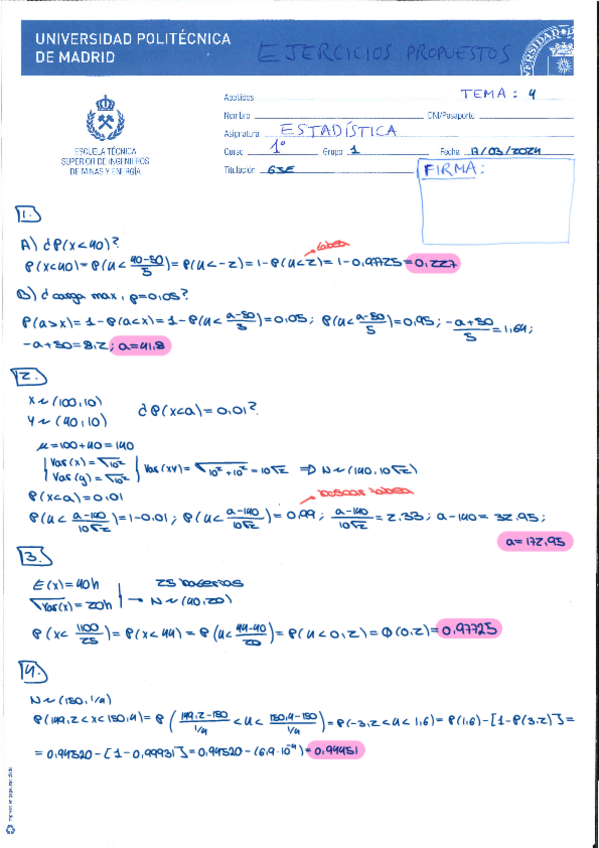 UNIVERSIDAD POLITÉCNICA
DE MADRID
EJERCICIOS PROPUESTOS
Apellidos TEMA: 4
Nombre DNI/Pasaporte
Asignatura ESTADÍSTICA
Curso 1º Grupo 1 Fecha 17/03/2024
Titulación GIE
FIRMA:
ESCUELA TÉCNICA
SUPERIOR DE INGENIEROS
DE MINAS Y ENERGÍA
1.
A) ¿P(x<40)?
tabla
P(x<40)=P(u<(40-50)/5)=P(u<-2)=1-P(u<2)=1-0,97725=0,227
B) ¿carga max, p=0,05?
P(a>x)=1-P(a<x)=1-P(u<(a-50)/5)=0,05; P(u<(a-50)/5)=0,95; (-a+50)/5=1,64;
-a+50=8,2; a=41,8
2.
X~(100,10)
Y~(40,10)
¿P(x<a)=0,01?
μ=100+40=140
Var(x)=√10²
Var(y)=√10²
Var(xy)=√10²+10²=10√2 ⇒ N~(140,10√2)
P(x<a)=0,01
buscar tabla
P(u<(a-140)/10√2)=1-0,01; P(u<(a-140)/10√2)=0,99; (a-140)/10√2=2,33; a-140=32,95;
a=172,95
3.
E(x)=40h
√Var(x)=20h
25 baterías
→ N~(40,20)
P(x<1100/25)=P(x<44)=P(u<(44-40)/20)=P(u<0,2)=Φ(0,2)=0,97725
4.
N~(150,1/4)
P(149,2<x<150,4)=P((149,2-150)/1/4<u<(150,4-150)/1/4)=P(-3,2<u<1,6)=P(1,6)-[1-P(3,2)]=
=0,94520-[1-0,99931]=0,94520-(6,9·10⁻⁴)=0,94451